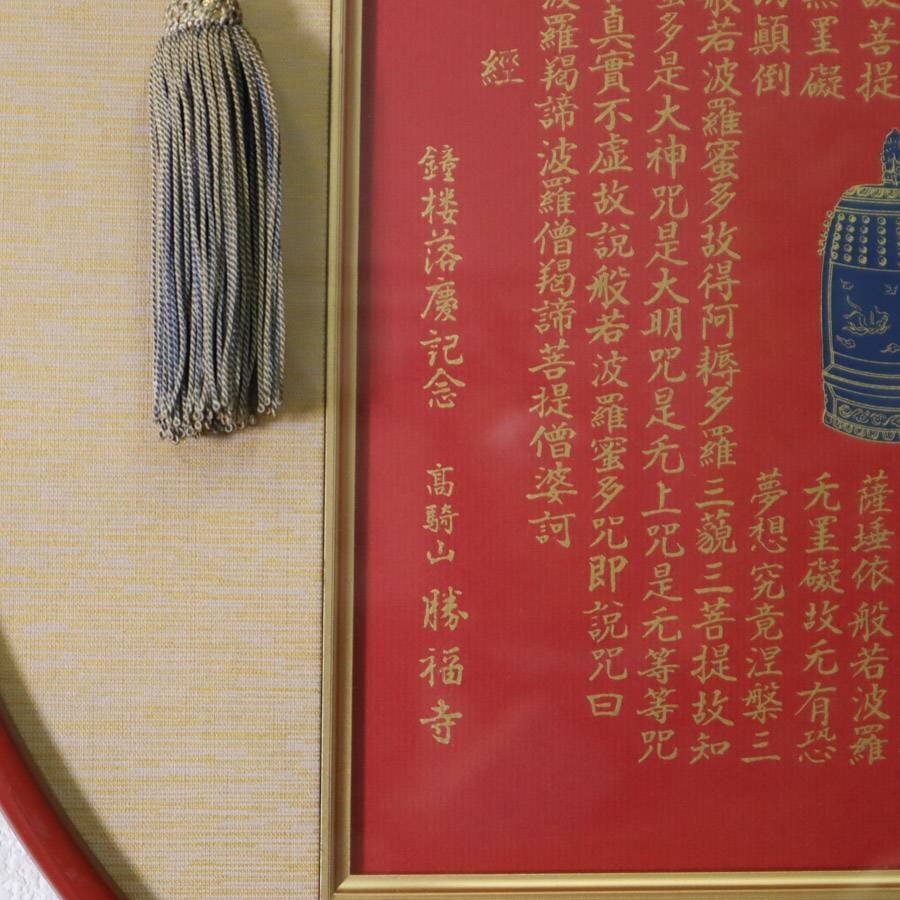 菩提
薩埵依般若波羅
罣礙
无罣礙故无有恐
顛倒
夢想究竟涅槃三
般若波羅蜜多故得阿耨多羅三藐三菩提故知
多是大神咒是大明咒是无上咒是无等等咒
真實不虛故說般若波羅蜜多咒即說咒曰
波羅羯諦波羅僧羯諦菩提僧婆訶
經
鐘楼落慶記念 高騎山 勝福寺